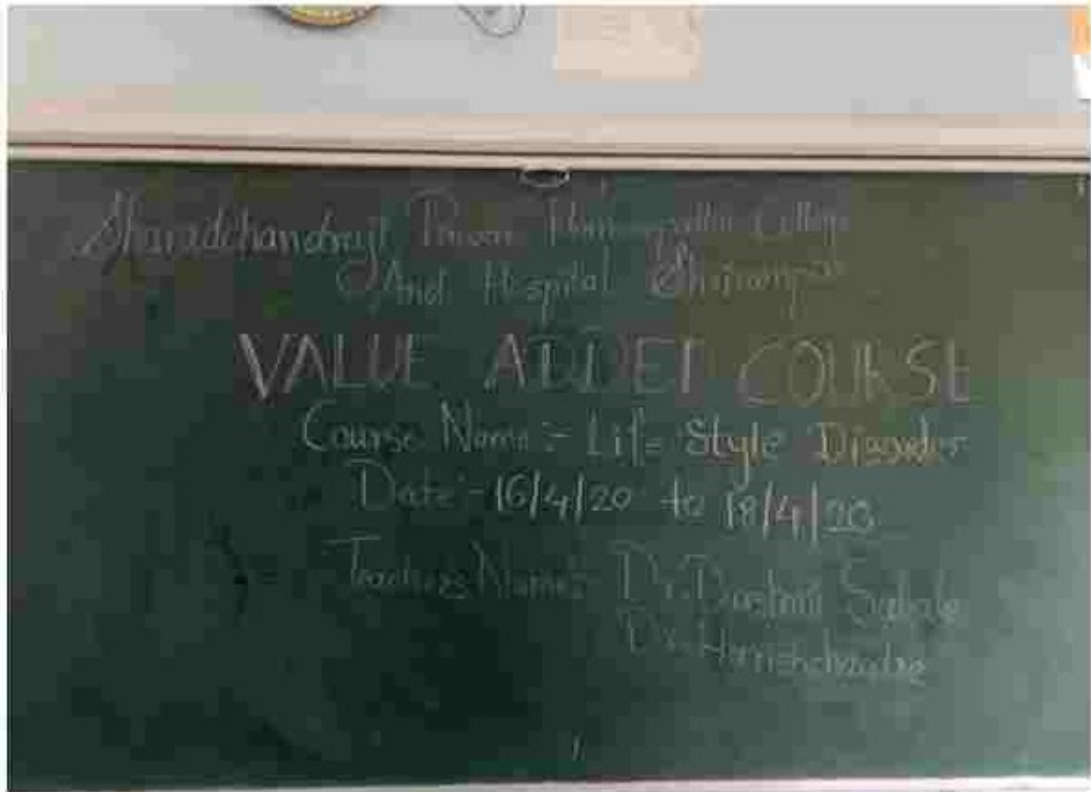 Sharadchandraji Pawar Homoeopathic College
And Hospital Shrirampur
VALUE ADDED COURSE
Course Name :- Life Style Disorder
Date - 16/4/20 to 18/4/20
Teachers Name :- Dr. Sabale
Dr. Harishchandre